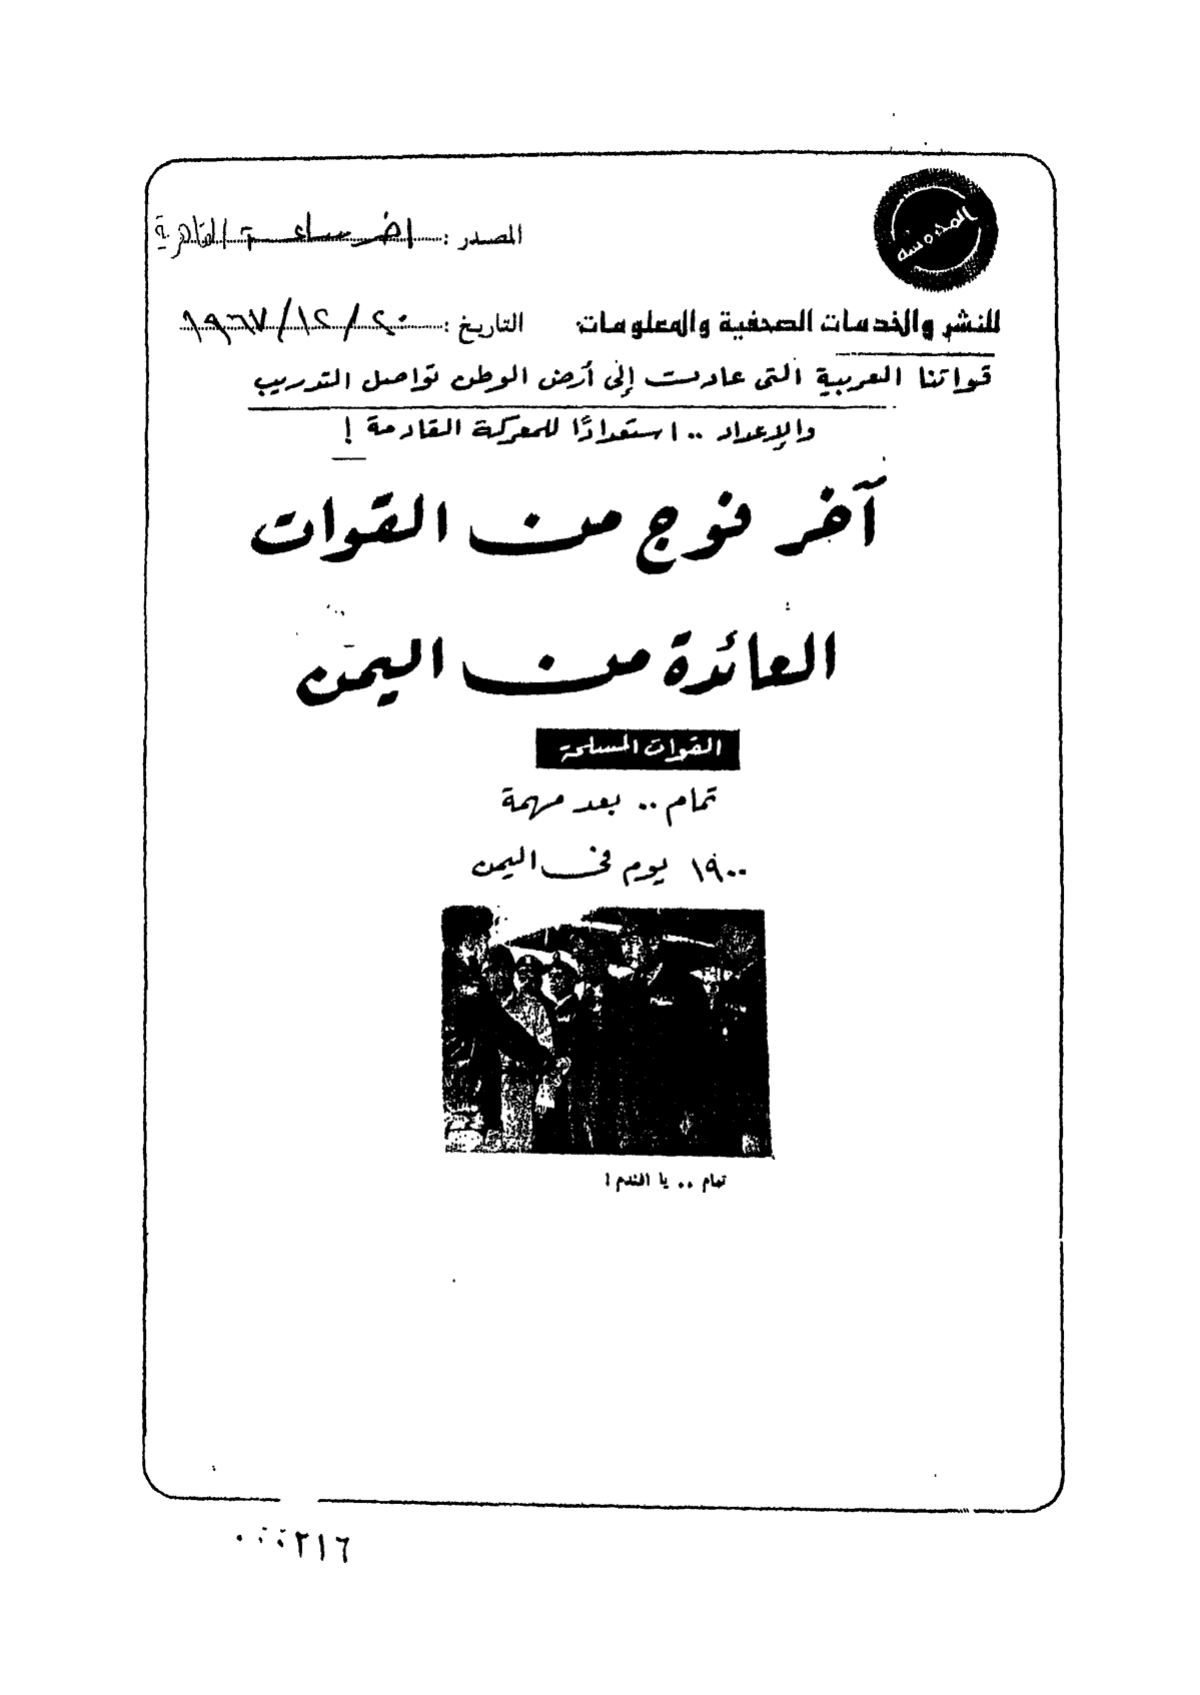 المحروسة
المصدر : اخر ساعة القاهرية
للنشر والخدمات الصحفية والمعلومات
التاريخ : ٢٠ / ١٢ / ١٩٦٧
قواتنا العربية التى عادت إلى أرض الوطن تواصل التدريب
والإعداد .. استعدادًا للمعركة القادمة !
آخر فوج من القوات
العائدة من اليمن
القوات المسلحة
تمام .. بعد مهمة
١٩٠٠ يوم فى اليمن
تمام .. يا افندم !
٢١٦